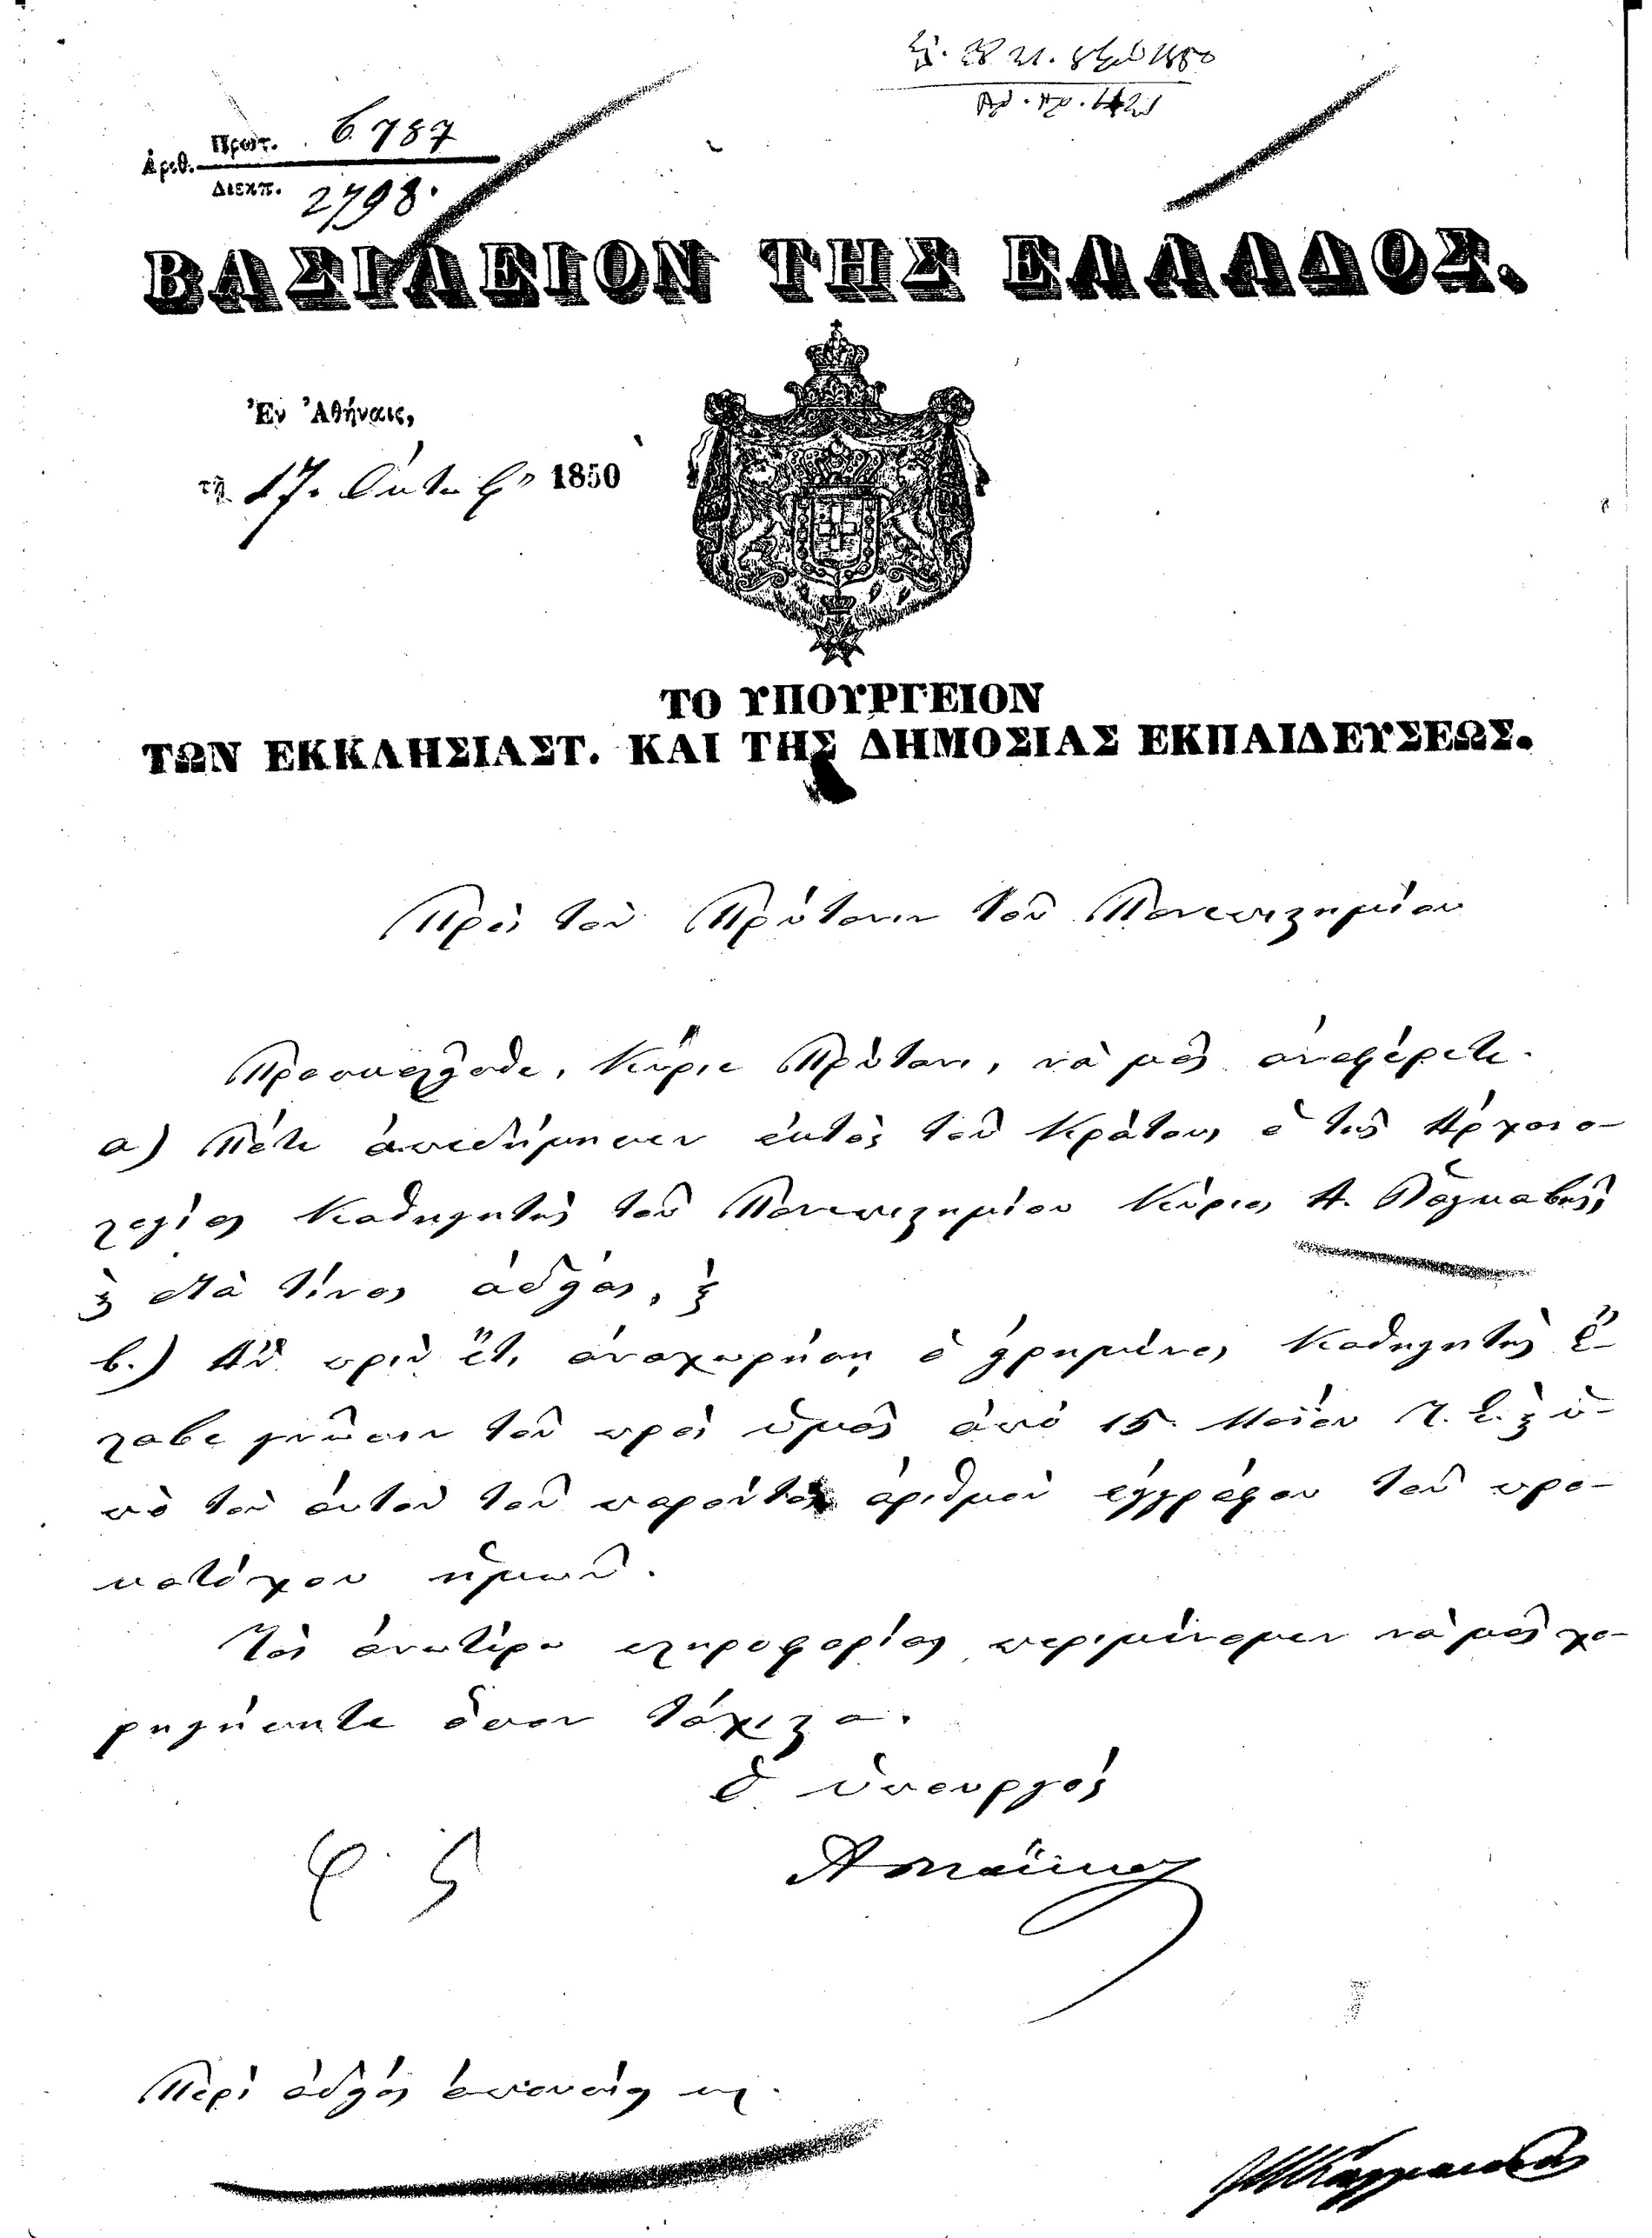 Πρωτ. 6787
Ἀριθ.
Διεκπ. 2798.
ΒΑΣΙΛΕΙΟΝ ΤΗΣ ΕΛΛΑΔΟΣ.
Ἐν Ἀθήναις,
τῇ 17. Ὀκτωβρ 1850
ΤΟ ΥΠΟΥΡΓΕΙΟΝ
ΤΩΝ ΕΚΚΛΗΣΙΑΣΤ. ΚΑΙ ΤΗΣ ΔΗΜΟΣΙΑΣ ΕΚΠΑΙΔΕΥΣΕΩΣ.
Πρὸς τὸν Πρύτανιν τοῦ Πανεπιστημίου
Προσκαλεῖσθε, Κύριε Πρύτανι, νὰ μᾶς ἀναφέρετε.
α) Πότε ἀπεδήμησεν ἐκτὸς τοῦ Κράτους ὁ τῆς Ἀρχαιο-
λογίας Καθηγητὴς τοῦ Πανεπιστημίου Κύριος Α. Ῥαγκαβῆς,
καὶ διὰ τίνος ἀδείας, καὶ
β.) Ἂν πρὶν ἔτι ἀναχωρήσῃ ὁ εἰρημένος Καθηγητὴς ἔ-
λαβε γνῶσιν τοῦ πρὸς ὑμᾶς ἀπὸ 15 Μαΐου ἰ. ἔ. καὶ ὑ-
πὸ τὸν αὐτὸν τοῦ παρόντος ἀριθμὸν ἐγγράφου τοῦ προ-
κατόχου ἡμῶν.
Τὰς ἀνωτέρω πληροφορίας περιμένομεν νὰ μᾶς χο-
ρηγήσητε ὅσον τάχιστα.
Ὁ ὑπουργὸς
Περὶ ἀδείας ἀπουσίας